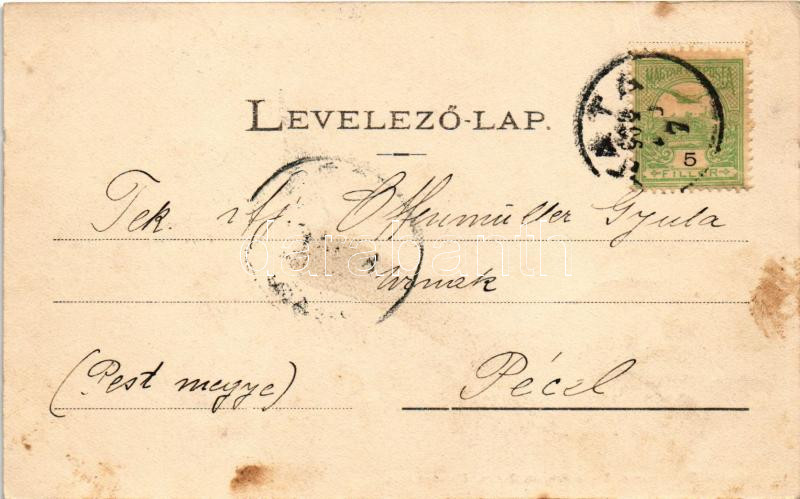 LEVELEZŐ-LAP.
MAGYAR POSTA
5
FILLÉR
Tek. ifj. Offenmüller Gyula
úrnak
darabanth
(Pest megye) Péczel